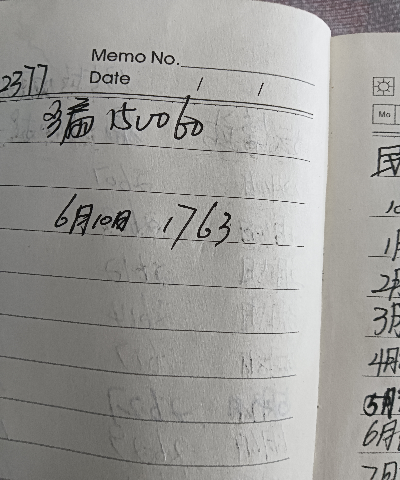 Memo No.
2377
Date / /
150060
6月10日 1763
Mo
民
10
1月
2月
3月
4月
5月
6月
7月